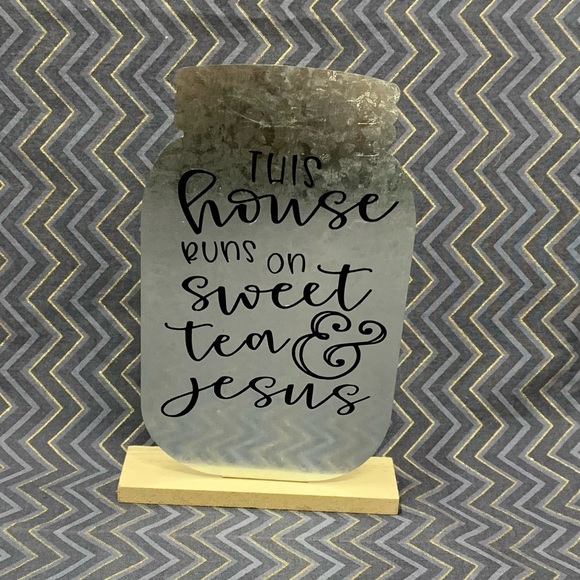 THIS
house
RUNS on
sweet
tea &
Jesus